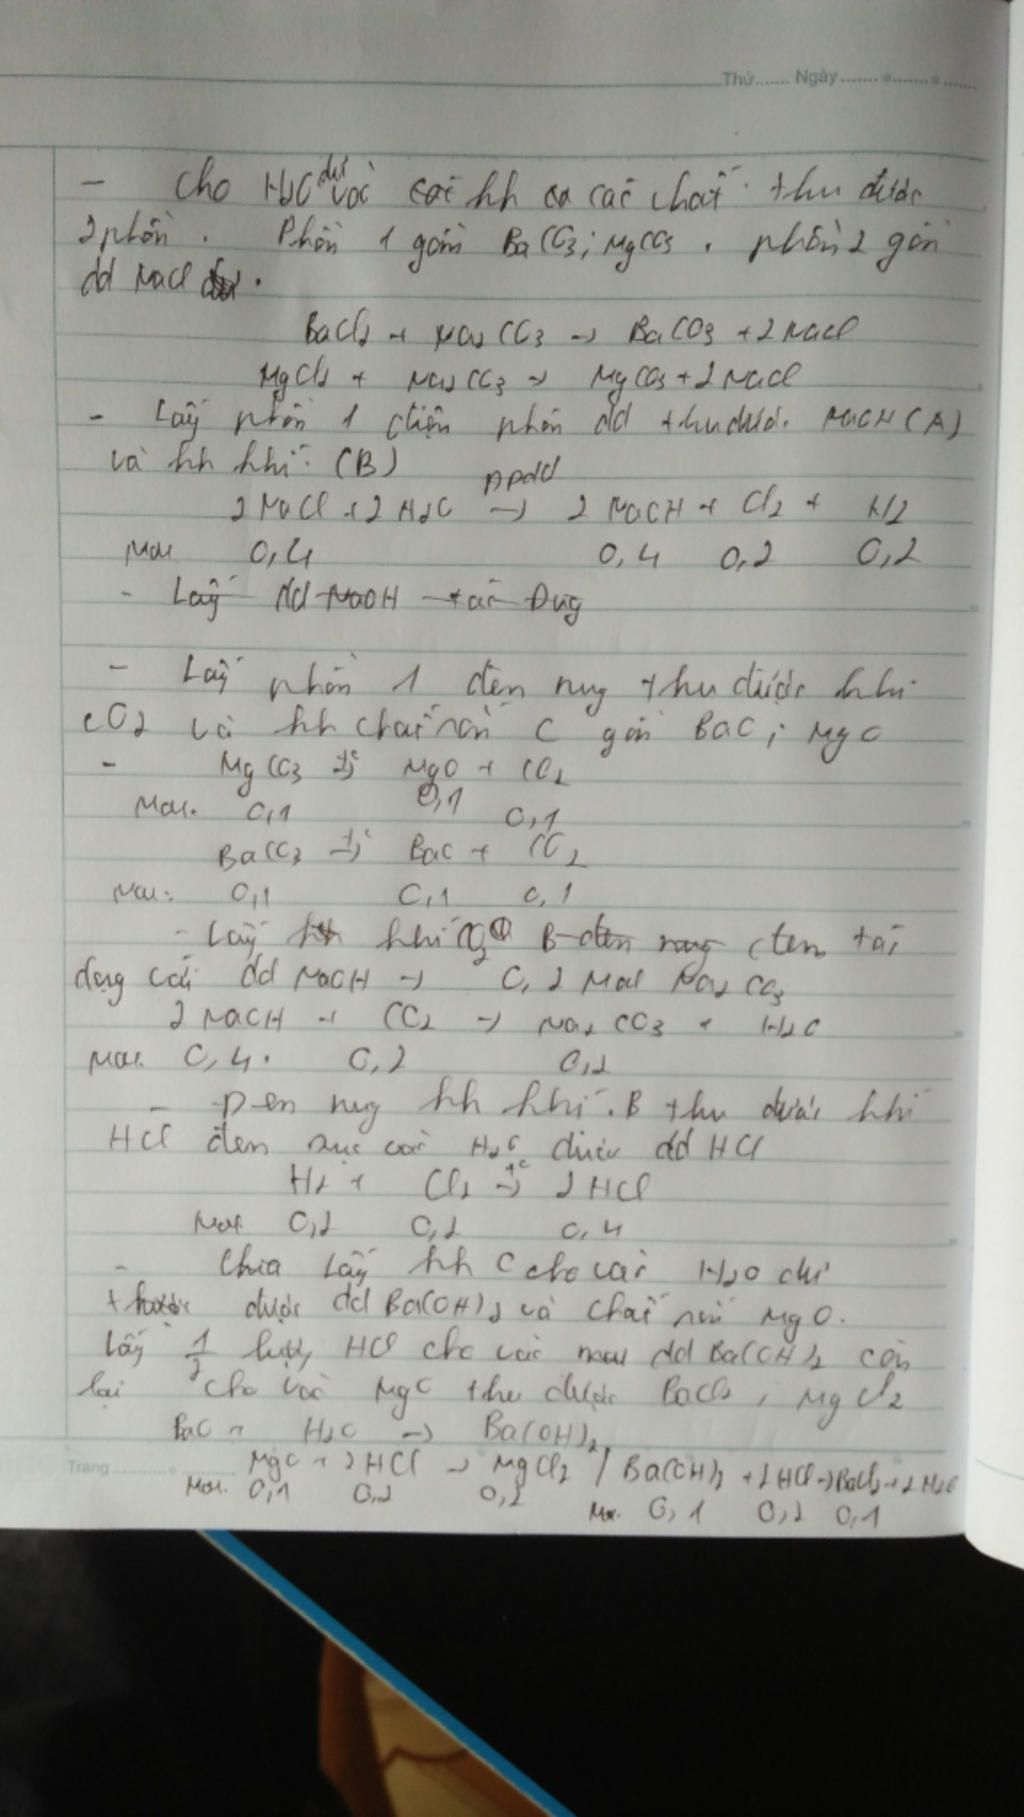 Thứ....... Ngày........ ........ .......
- Cho H2O dư vào các hh các chất thu được
2 phần. Phần 1 gồm BaCO3; MgCO3, phần 2 gồm
dd NaCl
BaCl2 + Na2CO3 → BaCO3 + 2NaCl
MgCl2 + Na2CO3 → MgCO3 + 2NaCl
- Lấy phần 1 điện phân dd thu được NaOH (A)
và hh khí (B)
2NaCl + 2H2O đpdd → 2NaOH + Cl2 + H2
Mol 0,4 0,4 0,2 0,2
- Lấy dd NaOH tác Dụg
- Lấy phần 1 đem nug thu được khí
CO2 và hh chất rắn C gồm BaO; MgO
- MgCO3 t°→ MgO + CO2
Mol. 0,1 0,1 0,1
BaCO3 t°→ BaO + CO2
Mol: 0,1 0,1 0,1
- Lấy khí CO2 B đem nung đem tác
dụng với dd NaOH → 0,2 Mol Na2CO3
2NaOH + CO2 → Na2CO3 + H2O
Mol. 0,4. 0,2 0,2
- Đem nug hh khí B thu được khí
HCl đem sục vào H2O được dd HCl
H2 + Cl2 t°→ 2HCl
Mol 0,2 0,2 0,4
- Chia Lấy hh C cho vào H2O dư
thu được dd Ba(OH)2 và chất rắn MgO.
Lấy 1/2 lượng HCl cho vào dd Ba(OH)2 còn
lại cho vào MgO thu được BaCl2, MgCl2
BaO + H2O → Ba(OH)2
Trang............ ........
MgO + 2HCl → MgCl2 / Ba(OH)2 + 2HCl → BaCl2 + 2H2O
Mol. 0,1 0,2 0,2 Mol. 0,1 0,2 0,1